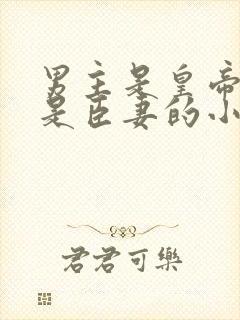 男主是皇帝
是臣妻的小
君君可樂